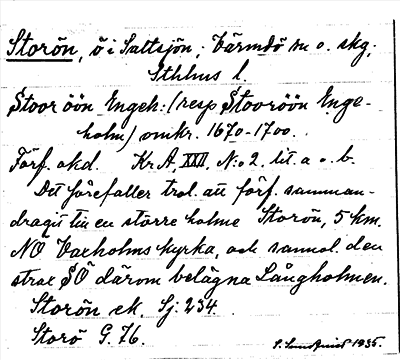 Storön, ö i Saltsjön, Värmdö sn o. skg,
Sthlms l.
Stoor öön Engeh: (resp Stooröön Enge-
holm) omkr. 1670-1700.
Förf. okd. Kr A, XXII, N:o 2. lit. a o. b.
Det förefaller trol. att förf. samman-
dragit till en större holme Storön, 5 km.
NO Vaxholms kyrka, och sannol. den
strax SÖ därom belägna Långholmen.
Storön ek. Sj: 234.
Storö G. 76.
1935.